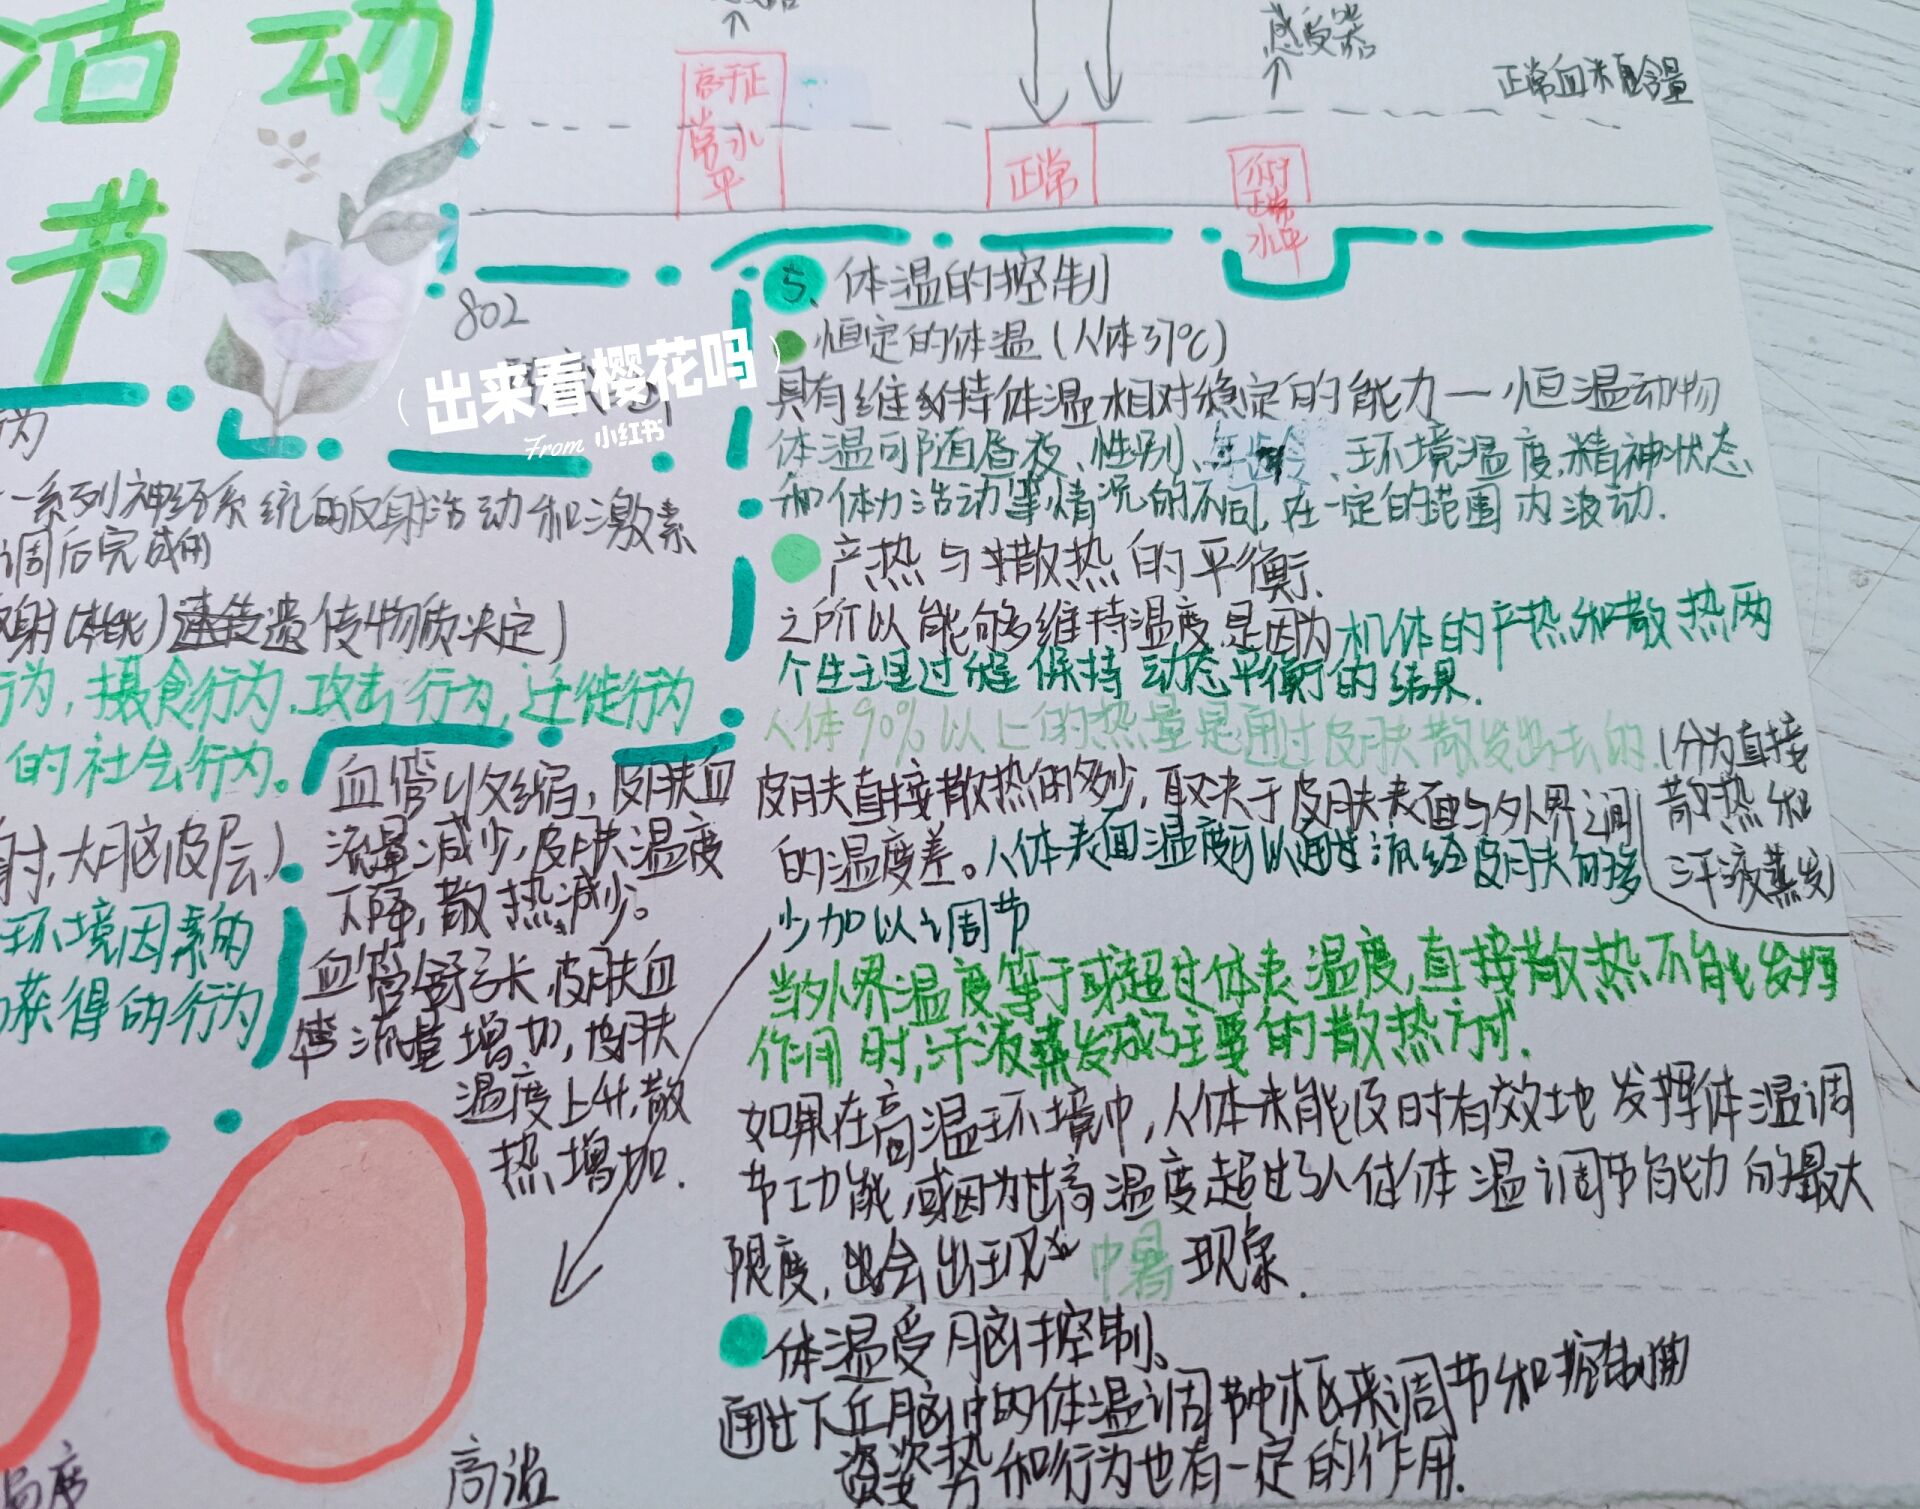 活动
节
感受器
正常血米唐含量
高于正
常水
平
正常
低于
正常
水平
802
(出来看樱花吗)
From 小红书
为
一系列神经系统的反射活动和激素
调后完成的
反射(本能)遗传物质决定)
行为,摄食行为.攻击行为,迁徙行为
的社会行为。
射,大脑皮层)
环境因素的
获得的行为
血管收缩,皮肤血
流量减少,皮肤温度
下降,散热减少。
血管舒张,皮肤血
流量增加,皮肤
温度上升,散
热增加.
高温
5、体温的控制
恒定的体温(人体37℃)
具有维持体温相对稳定的能力一恒温动物
体温可随昼夜、性别、年龄、环境温度,精神状态
和体力活动等情况的不同,在一定的范围内波动.
产热与散热的平衡.
之所以能够维持温度是因为机体的产热和散热两
个生理过程保持动态平衡的结果.
人体90%以上的热量是通过皮肤散发出去的.(分为直接
散热和
汗液蒸发)
皮肤直接散热的多少,取决于皮肤表面与外界之间
的温度差。人体表面温度可以通过流经皮肤的多
少加以调节
当外界温度等于或超过体表温度,直接散热不能发挥
作用时,汗液蒸发成了主要的散热方式.
如果在高温环境中,人体未能及时有效地发挥体温调
节功能,或因为过高温度超过了人体体温调节能力的最大
限度,也会出现中暑现象.
体温受脑控制、
通过下丘脑中的体温调节中枢来调节和控制的
姿势和行为也有一定的作用.